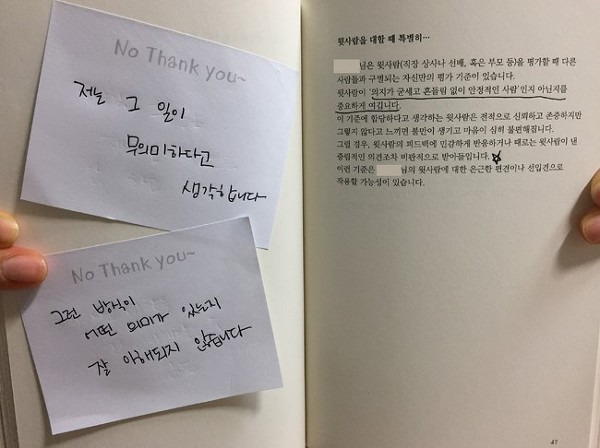 No Thank you~
저는 그 일이
무의미하다고
생각합니다
No Thank you~
그런 방식이
어떤 의미가 있는지
잘 이해되지 않습니다
윗사람을 대할 때 특별히…
님은 윗사람(직장 상사나 선배, 혹은 부모 등)을 평가할 때 다른
사람들과 구별되는 자신만의 평가 기준이 있습니다.
윗사람이 '의지가 굳세고 흔들림 없이 안정적인 사람'인지 아닌지를
중요하게 여깁니다.
이 기준에 합당하다고 생각하는 윗사람은 전적으로 신뢰하고 존중하지만
그렇지 않다고 느끼면 불만이 생기고 마음이 심히 불편해집니다.
그럴 경우, 윗사람의 피드백에 민감하게 반응하거나 때로는 윗사람이 낸
중립적인 의견조차 비판적으로 받아들입니다.
이런 기준은 님의 윗사람에 대한 은근한 편견이나 선입견으로
작용할 가능성이 있습니다.
41